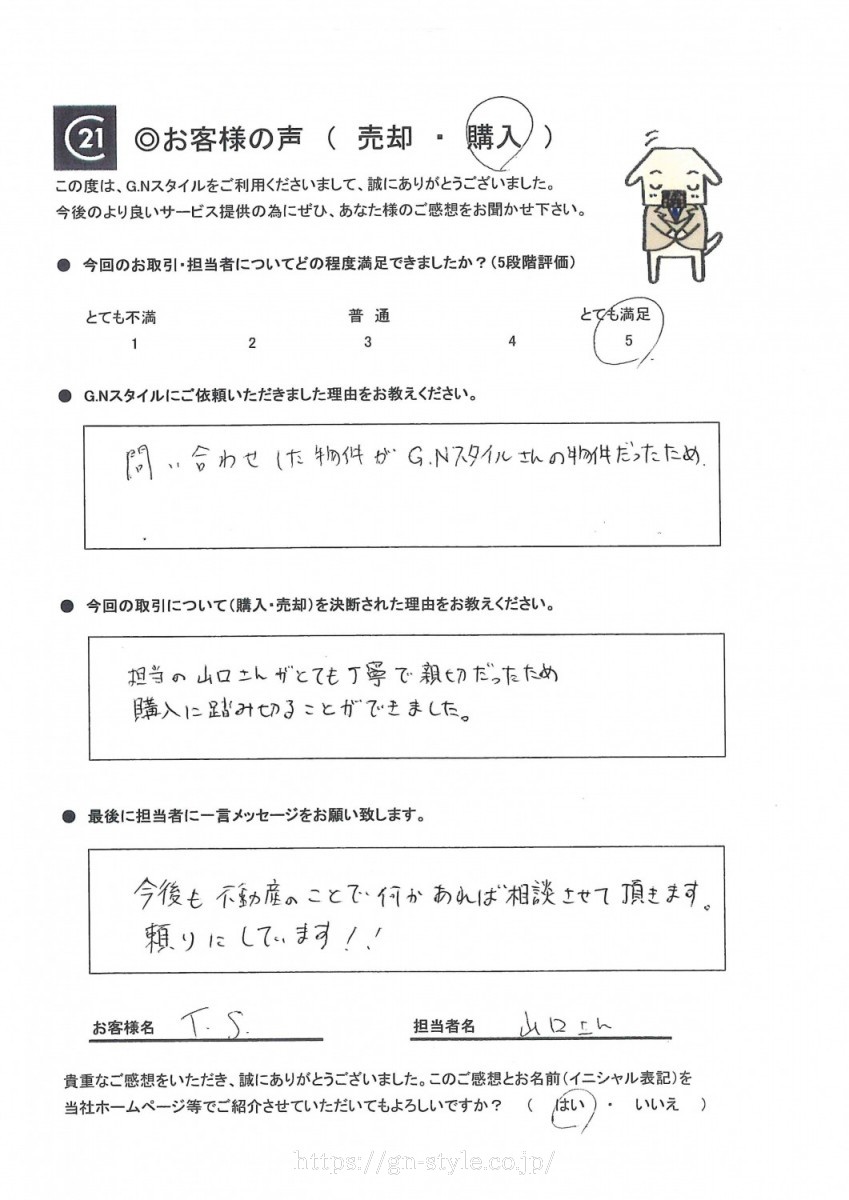 C21
◎お客様の声 ( 売却 ・ 購入 )
この度は、G.Nスタイルをご利用くださいまして、誠にありがとうございました。
今後のより良いサービス提供の為にぜひ、あなた様のご感想をお聞かせ下さい。
● 今回のお取引・担当者についてどの程度満足できましたか？(5段階評価)
とても不満 普 通 とても満足
1 2 3 4 5
● G.Nスタイルにご依頼いただきました理由をお教えください。
問い合わせした物件がG.Nスタイルさんの物件だったため.
● 今回の取引について(購入・売却)を決断された理由をお教えください。
担当の山口さんがとても丁寧で親切だったため
購入に踏み切ることができました。
● 最後に担当者に一言メッセージをお願い致します。
今後も不動産のことで何かあれば相談させて頂きます。
頼りにしています!!
お客様名 T.S. 担当者名 山口さん
貴重なご感想をいただき、誠にありがとうございました。このご感想とお名前(イニシャル表記)を
当社ホームページ等でご紹介させていただいてもよろしいですか？ ( はい ・ いいえ )
https://gn-style.co.jp/